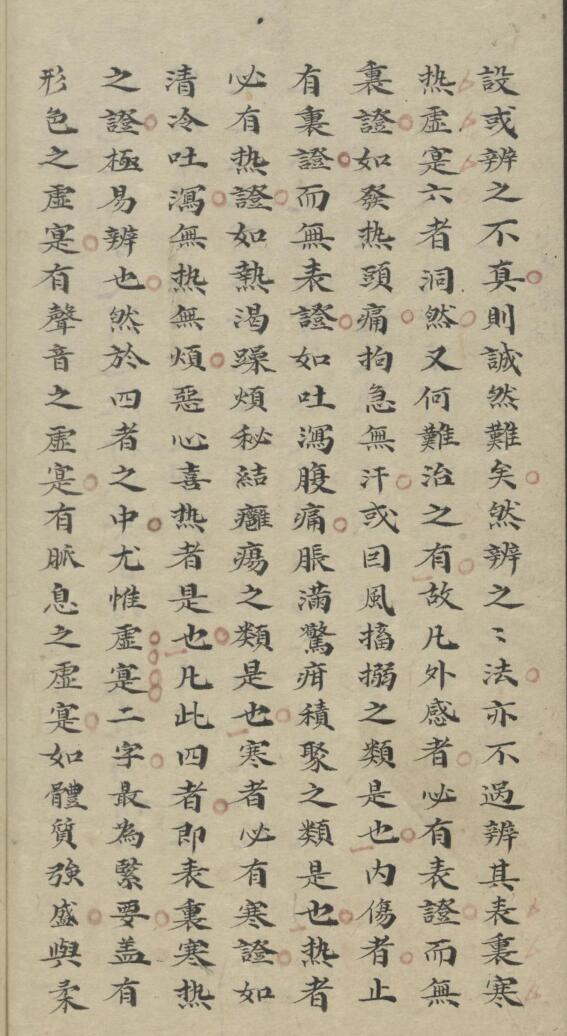 設或辨之不真則誠然難矣然辨之〻法亦不過辨其表裏寒
热虛寔六者洞然又何難治之有故凡外感者必有表證而無
裏證如發热頭痛拘急無汗或因風搐搦之類是也内傷者止
有裏證而無表證如吐瀉腹痛脹滿驚疳積聚之類是也热者
必有热證如熱渴躁煩秘結癰瘍之類是也寒者必有寒證如
清冷吐瀉無热無煩惡心喜热者是也凡此四者即表裏寒热
之證極易辨也然於四者之中尤惟虛寔二字最為緊要盖有
形色之虛寔有聲音之虛寔有脈息之虛寔如體質強盛與柔